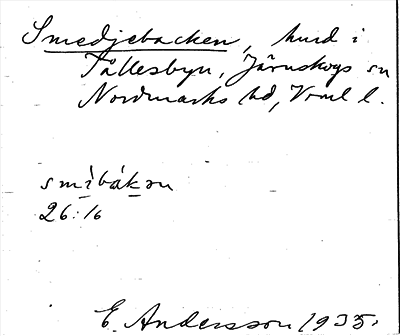 Smedjebacken, hmd i
Tållesbyn, Järnskogs sn
Nordmarks hd, Vrml l.
smìbákən
26:16
E. Andersson 1935.